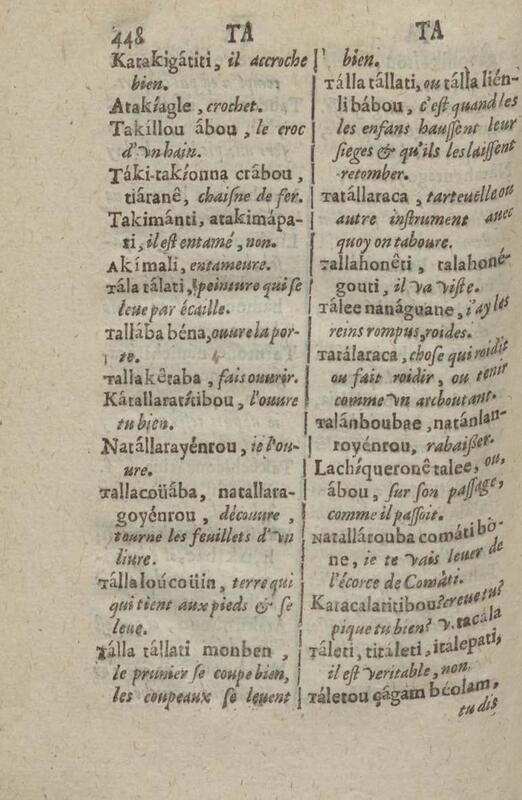 448 TA TA
Katakigátiti, il accroche
bien.
Atakíagle, crochet.
Takíllou ábou, le croc
d'vn hain.
Táki-takíonna crábou,
tiáranê, chaisne de fer.
Takimánti, atakimápa-
ti, il est entamé, non.
Akímali, entameure.
Tála tálati, peinture qui se
leue par écaille.
Tallába béna, ouure la por-
te.
Tallakêtaba, fais ouurir.
Kátallaratítibou, l'ouure
tu bien.
Natállarayénrou, ie l'ou-
ure.
Tallacoüába, natallara-
goyénrou, découure,
tourne les feuillets d'vn
liure.
Tállaloúcoüin, terre qui
qui tient aux pieds & se
leue.
Tálla tállati monben,
le prunier se coupe bien,
les coupeaux se leuent
bien.
Tálla tállati, ou tálla lién-
li bábou, c'est quand les
les enfans haussent leur
sieges & qu'ils les laissent
retomber.
Tatállaraca, tarteuëlle ou
autre instrument auec
quoy on taboure.
Tallahonêti, talahoné-
gouti, il va viste.
Tálee nanáguane, i'ay les
reins rompus, roides.
Tatálaraca, chose qui roidit
ou fait roidir, ou tenir
comme vn arcboutant.
Talánboubae, natánlan-
royénrou, rabaißer.
Lachíqueronêtalee, ou,
ábou, sur son passage,
comme il passoit.
Natallárouba comáti bo-
ne, ie te vais leuer de
l'écorce de Comáti.
Katacalatitibou? creue tu?
pique tu bien? v. tacála
Táleti, titáleti, italepati,
il est veritable, non.
Táletou çágam béolam,
tu dis